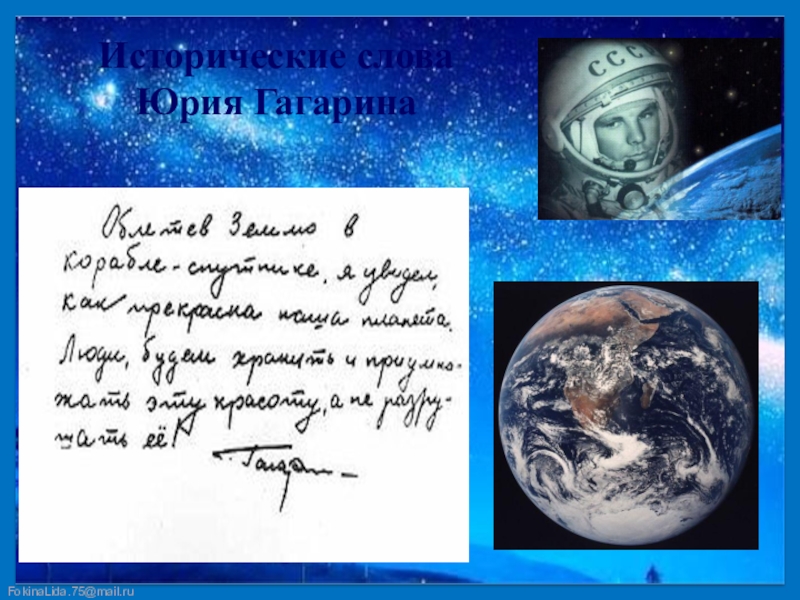 Исторические слова
Юрия Гагарина
СССР
Облетев Землю в
корабле-спутнике, я увидел,
как прекрасна наша планета.
Люди, будем хранить и приумно-
жать эту красоту, а не разру-
шать её!
Гагарин
FokinaLida.75@mail.ru